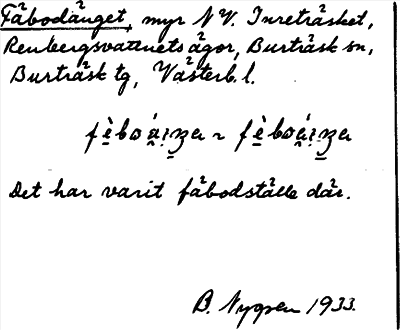 Fäbodänget, myr N V. Inreträsket,
Renbergsvattnets ägor, Burträsk sn,
Burträsk tg, Västerb. l.
Det har varit fäbodställe där.
B. Nygren 1933.